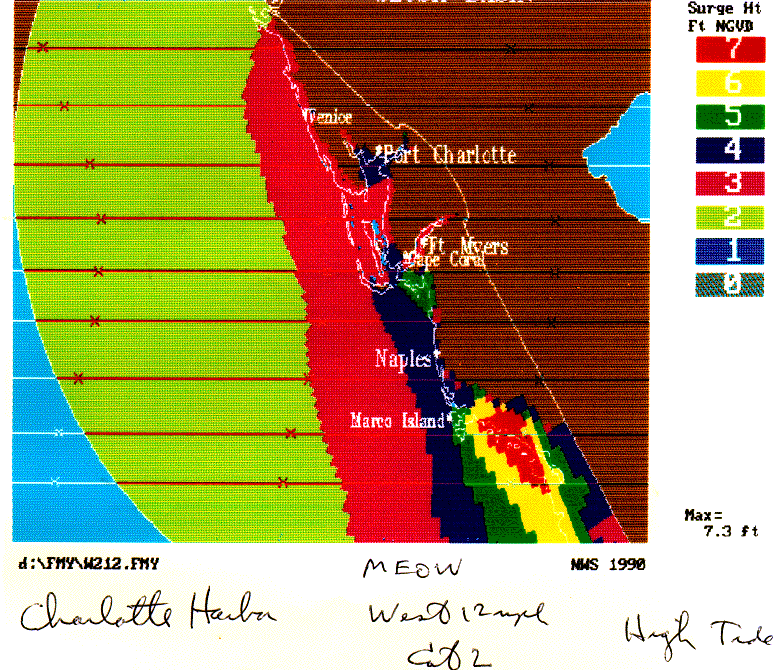 Surge Ht
Ft NGVD
7
6
5
4
3
2
1
0
Venice
Port Charlotte
Ft Myers
Cape Coral
Naples
Marco Island
Max=
7.3 ft
d:\FMY\W212.FMY
MEOW
NWS 1990
Charlotte Harbor
West 12 mph
High Tide
Cat 2